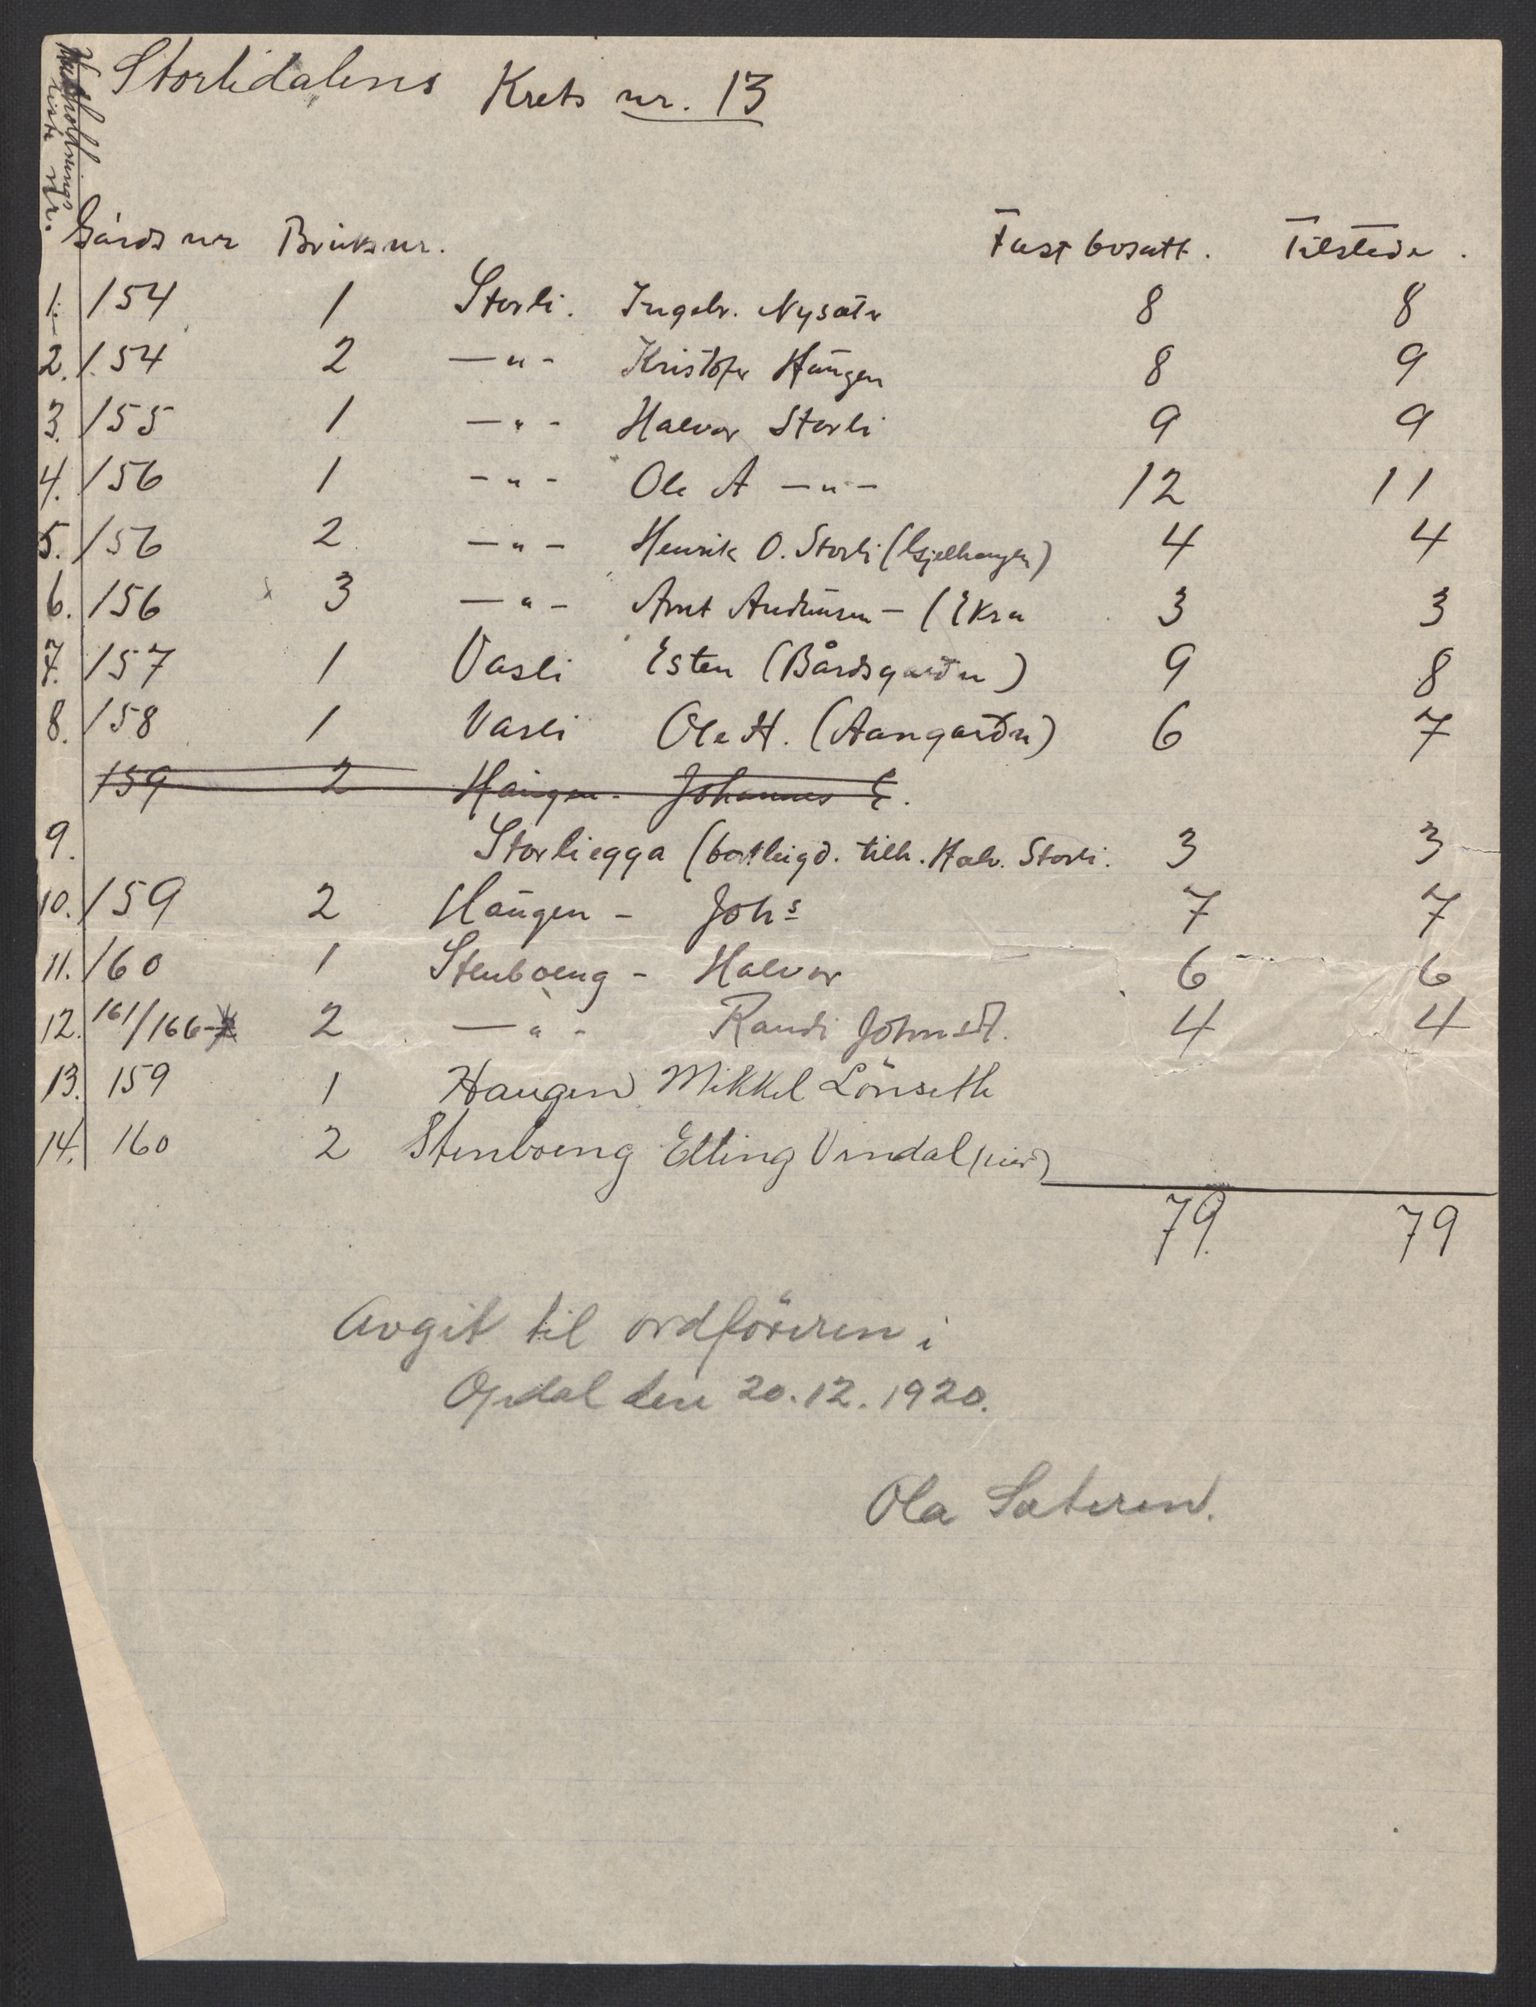 Storlidalens Krets nr. 13
liste nr.
Gårds nr Bruksnr. Fast bosatt. Tilstede.
1. 154 1 Storli. Ingebr. Nysæter 8 8
2. 154 2 —"- Kristofer Haugen 8 9
3. 155 1 —"- Halvor Storli 9 9
4. 156 1 -"- Ole A —"— 12 11
5. 156 2 —"— Henrik O. Storli (Gjelhaugen) 4 4
6. 156 3 —"— Arnt Andersen — (Ekra 3 3
7. 157 1 Vasli Esten (Bårdsgarden) 9 8
8. 158 1 Vasli Ole H. (Aangarden) 6 7
159 2 Haugen - Johannes E.
9. Storliegga (bortleigd. tilh. Halv. Storli. 3 3
10. 159 2 Haugen - Johs 7 7
11. 160 1 Stenboeng - Halvor 6 6
12. 161/166 2 —"- Randi Johnsd. 4 4
13. 159 1 Haugen Mikkel Lönseth
14. 160 2 Stenboeng Elling Vindal
79. 79
Avgit til ordföreren i
Opdal den 20.12.1920.
Ola Sæteren.